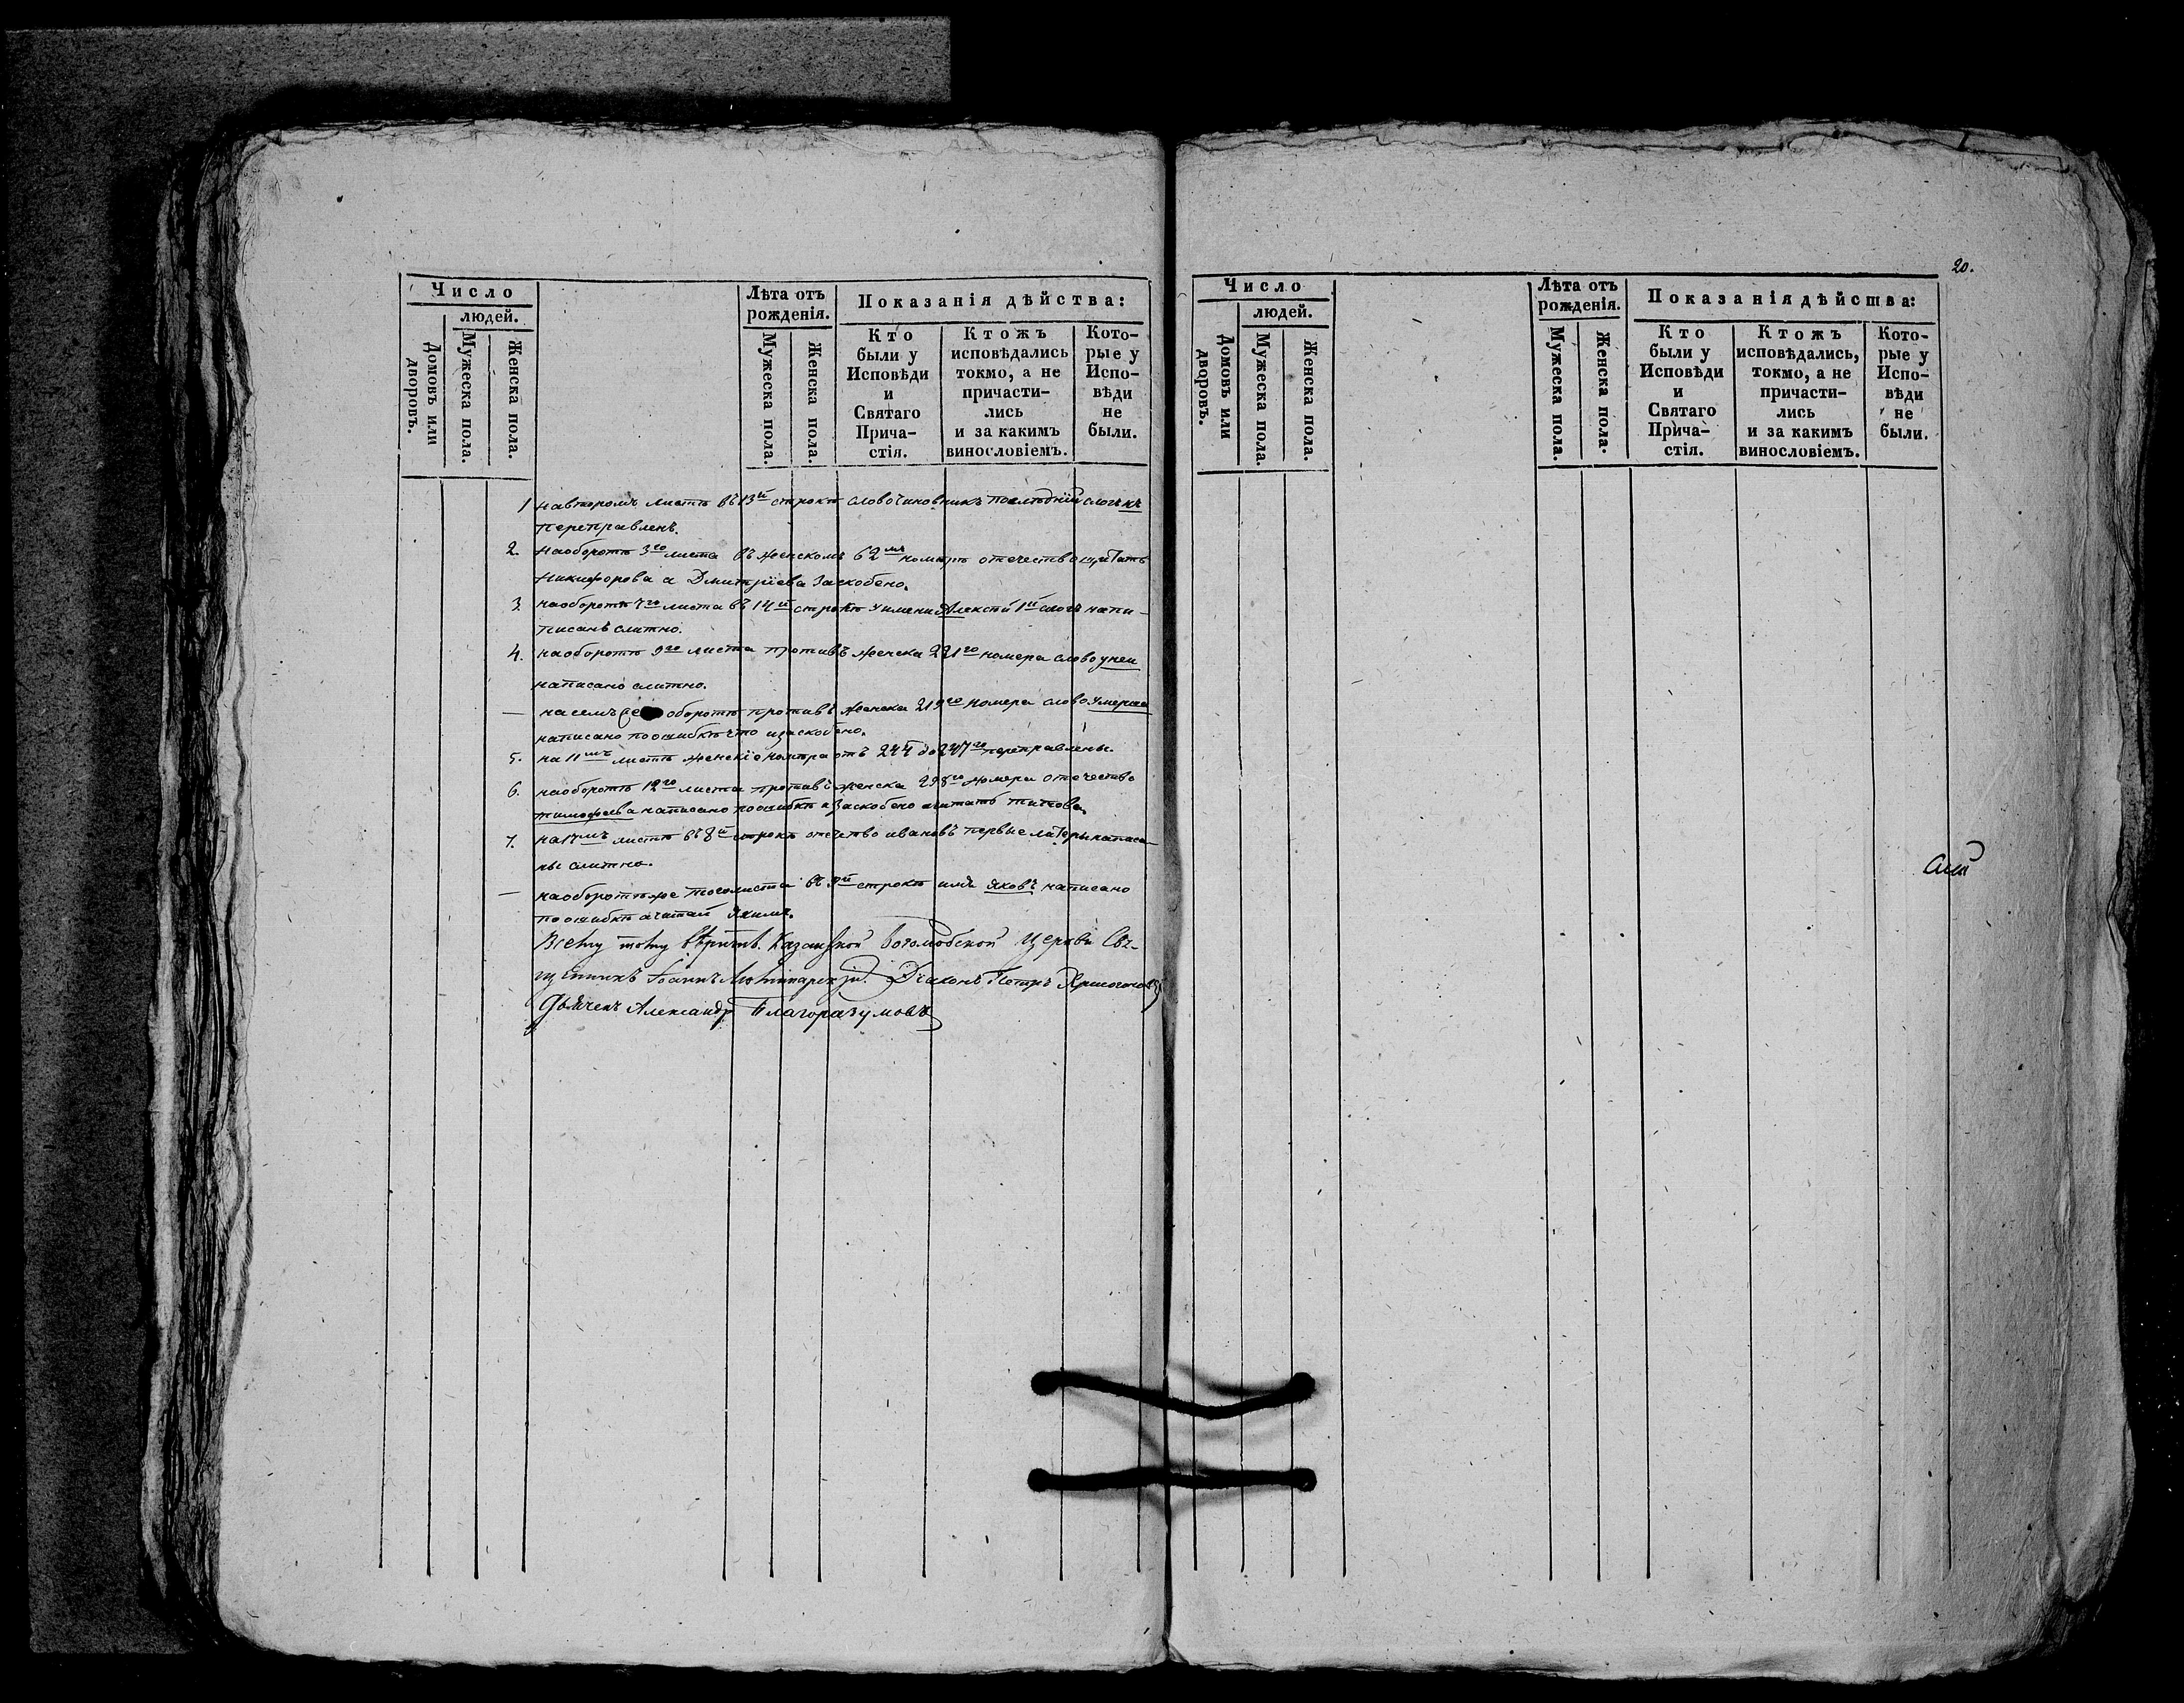 Число
людей.
Домовъ или дворовъ.
Мужеска пола.
Женска пола.
Лѣта отъ
рожденія.
Мужеска пола.
Женска пола.
Показанія дѣйства:
Кто
были у
Исповѣди
и
Святаго
Прича-
стія.
Ктожъ
исповѣдались
токмо, а не
причасти-
лись
и за какимъ
винословіемъ.
Кото-
рые у
Испо-
вѣди
не
были.
1 на второмъ листѣ въ 13й строкѣ слово чиновникъ последній слогъ къ
переправленъ.
2. на оборотѣ 3го листа въ женскомъ 62мъ номерѣ отечество читать
Никифорова а Дмитріева заскобено.
3. на оборотѣ 7го листа въ 14й строкѣ у имени Алексѣй 1й слогъ напи-
писанъ слитно.
4. на оборотѣ 9го листа противъ женска 221го номера слово у неи
написано слитно.
— на семъ же оборотѣ противъ женска 219го номера слово умерша
написано по ошибкѣ что и заскобено.
5. на 11мъ листѣ женскіе номера отъ 244 до 247го переправлены.
6. на оборотѣ 12го листа противъ женска 298го номера отечество
тимофеева написано по ошибкѣ и заскобено читать титова.
7. на 17мъ листѣ въ 8й строкѣ отечество ивановъ первые литеры написа-
ны слитно.
— на оборотѣ же того листа въ 9й строкѣ имя яковъ написано
по ошибкѣ а читай якимъ.
Всему тому вѣрить. Казанской Церкви Свя-
щенникъ Іоаннъ Діаконъ Петръ
Дьячекъ Александръ Благоразумовъ
20.
Число
людей.
Домовъ или дворовъ.
Мужеска пола.
Женска пола.
Лѣта отъ
рожденія.
Мужеска пола.
Женска пола.
Показанія дѣйства:
Кто
были у
Исповѣди
и
Святаго
Прича-
стія.
Ктожъ
исповѣдались,
токмо, а не
причасти-
лись
и за какимъ
винословіемъ.
Кото-
рые у
Испо-
вѣди
не
были.